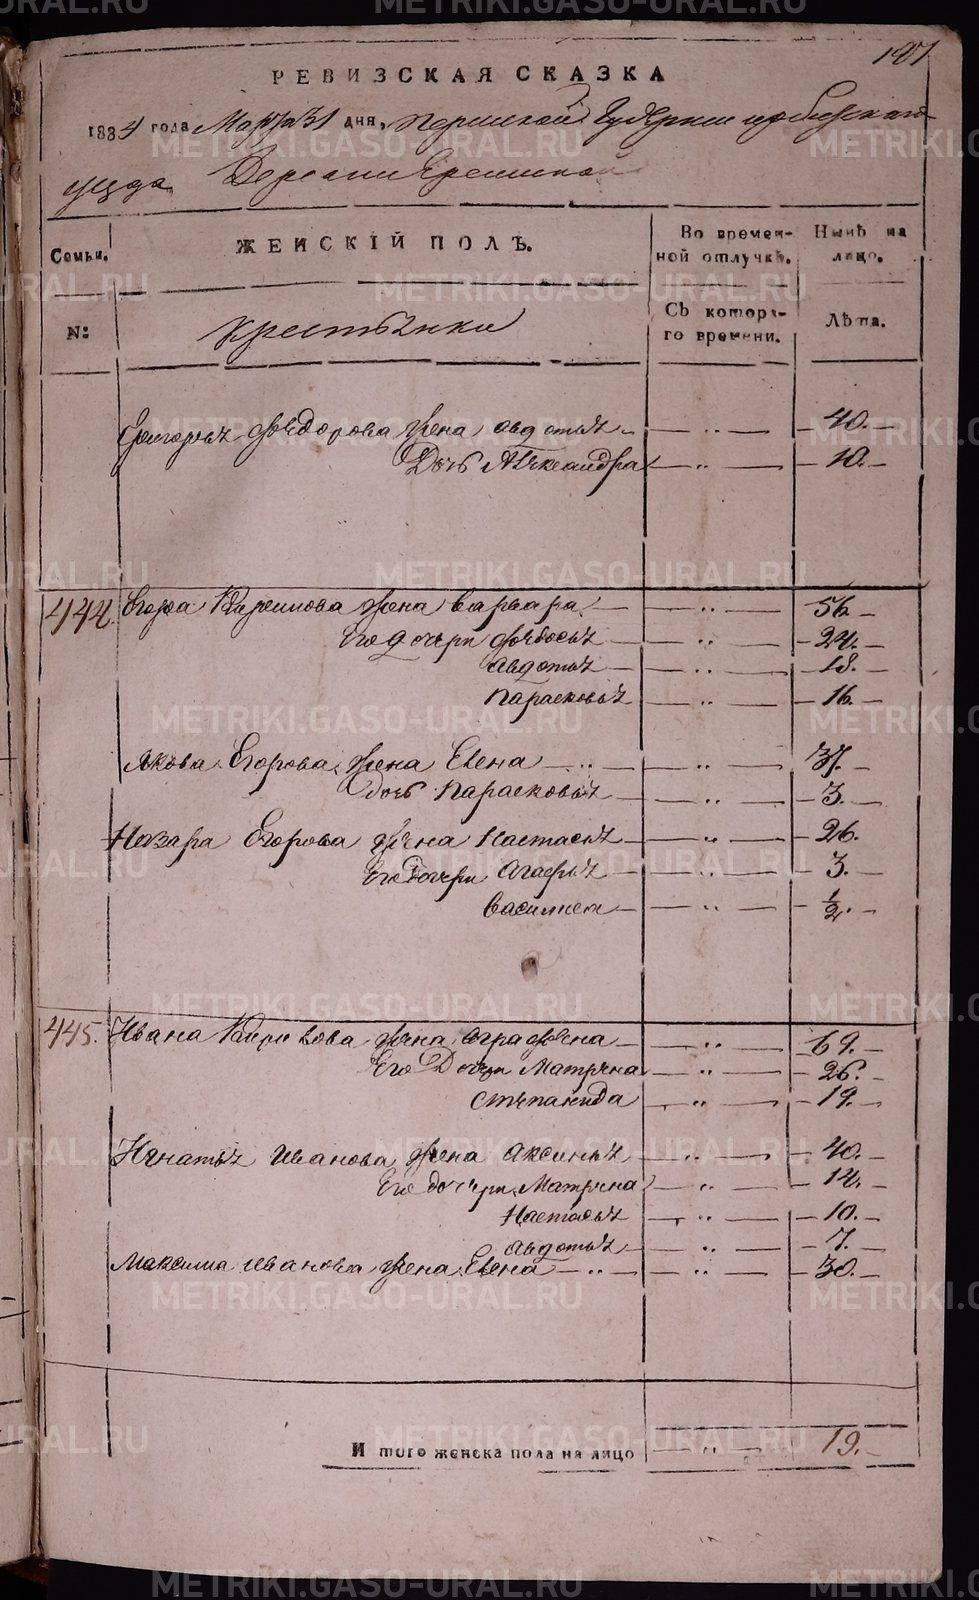 107
РЕВИЗСКАЯ СКАЗКА
1834 года Марта 31 дня, Пермской Губернии Ирбитскаго
уезда Деревни
Семьи.
ЖЕНСКІЙ ПОЛЪ.
Во времен-
ной отлучкѣ.
Нынѣ на
лицо.
№:
Крестьянки
Съ котора-
го времени.
Лѣта.
Григорья Федорова жена Авдотья — „ — 40.
Дочь Александра — „ — 10.
444. Егора жена Варвара — „ — 56.
Его дочери Федосья — „ — 24.
Авдотья — „ — 18.
Парасковья — „ — 16.
Якова Егорова жена Елена — „ — 31.
дочь Парасковья — „ — 3.
Назара Егорова жена Настасья — „ — 26.
Его дочери Агафья — „ — 3.
Василиса — „ — 1/2.
445. Ивана жена Аграфена — „ — 69.
Его Дочери Матрена — „ — 26.
Степанида — „ — 19.
Игнатья Иванова жена Аксинья — „ — 40.
Его дочери Матрена — „ — 14.
Настасья — „ — 10.
Авдотья — „ — 7.
Максима Иванова жена Елена — „ — 30.
И того женска пола на лицо — „ — 19.
METRIKI.GASO-URAL.RU